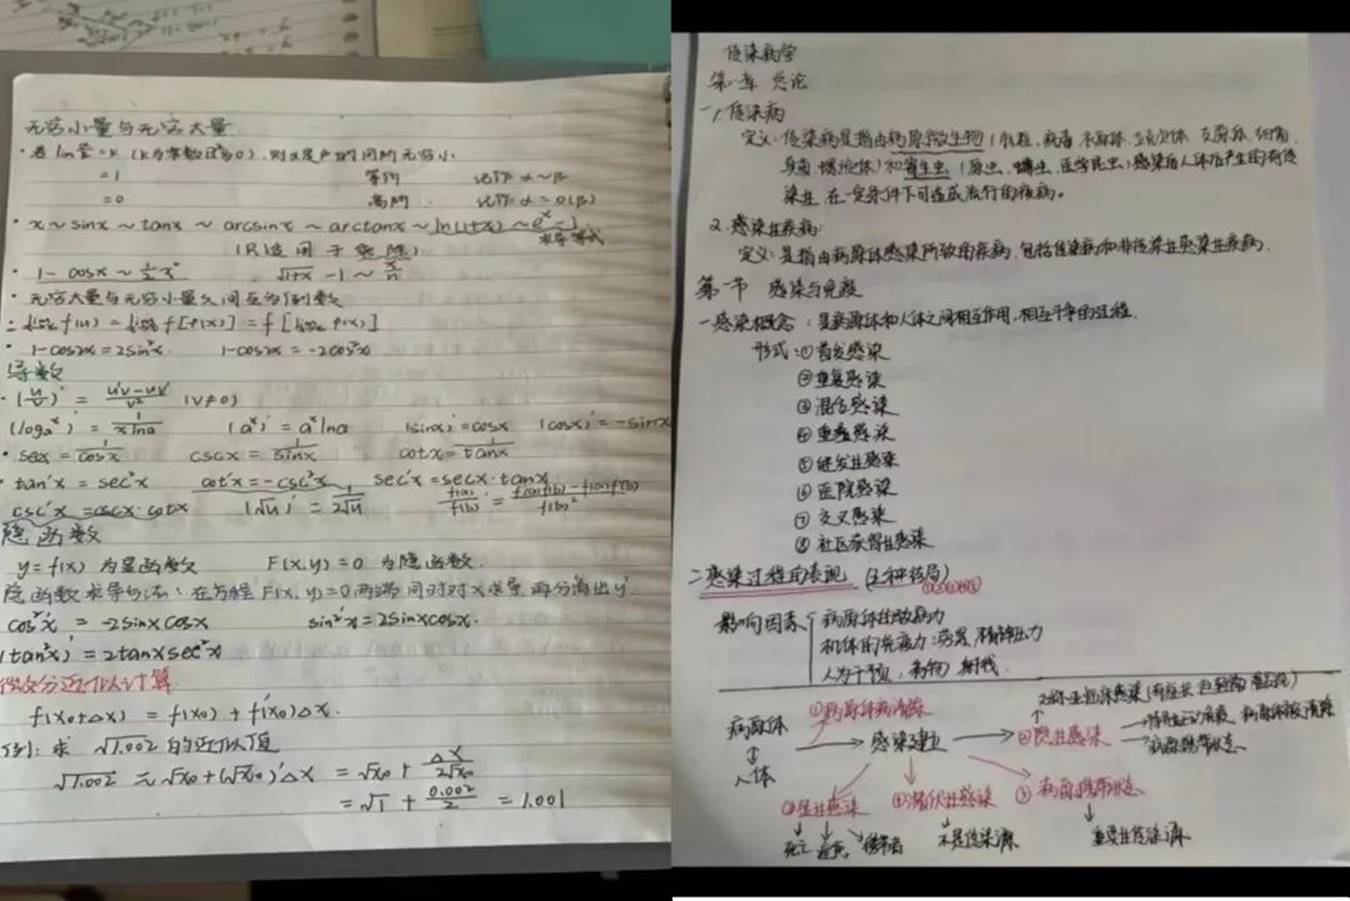 无穷小量与无穷大量
=1 等阶 记作 α～β
=0 高阶 记作 α=o(β)
x～sinx～tanx～arcsinx～arctanx～ln(1+x)～e^x-1
(只适用于乘除)
1-cosx～½x² -1～
无穷大量与无穷小量之间互为倒数
= f(u) = f[φ(x)] = f[ φ(x)]
1-cos2x=2sin²x 1-cos2x=-2cos²x
导数
(u/v)' = u'v-uv'/v² (v≠0)
= 1/xlna (a^x)'=a^x lna (sinx)'=cosx (cosx)'=-sinx
secx=1/cosx cscx=1/sinx cotx=1/tanx
tan'x=sec²x cot'x=-csc²x sec'x=secx·tanx
csc'x=-cscx·cotx (√u)'=1/2√u
隐函数
y=f(x) 为显函数 F(x,y)=0 为隐函数.
隐函数求导方法:在方程 F(x,y)=0 两端同时对x求导 再分离出y'
cos²'x=-2sinxcosx sin²'x=2sinxcosx.
(tan²x)'=2tanxsec²x
微分近似计算
f(x₀+Δx)=f(x₀)+f'(x₀)Δx.
例:求 √1.002 的近似值
√1.002≈√x₀+(√x₀)'Δx =√x₀+Δx/2√x₀
=√1+0.002/2 =1.001
传染病学
第一章 总论
一、1.传染病
定义:传染病是指由病原微生物(朊粒、病毒、衣原体、立克次体、支原体、细菌、
真菌、螺旋体)和寄生虫(原虫、蠕虫、医学昆虫)感染后人体后产生的有传
染性、在一定条件下可造成流行的疾病。
2.感染性疾病:
定义:是指由病原体感染所致的疾病,包括传染病和非传染性感染性疾病.
第一节 感染与免疫
一感染概念:是病原体和人体之间相互作用,相互斗争的过程.
形式:①首发感染
②重复感染
③混合感染
④重叠感染
⑤继发性感染
⑥医院感染
⑦交叉感染
⑧社区获得性感染
二感染过程的表现(五种结局)
影响因素 病原体性致病力
机体的免疫力
人为干预,药物
①病原体被清除
病原体
人体
感染建立
②隐性感染
病原体被清除
病原携带状态.
③显性感染 ④潜伏性感染
死亡 携带者 不是传染源 重要性传染源